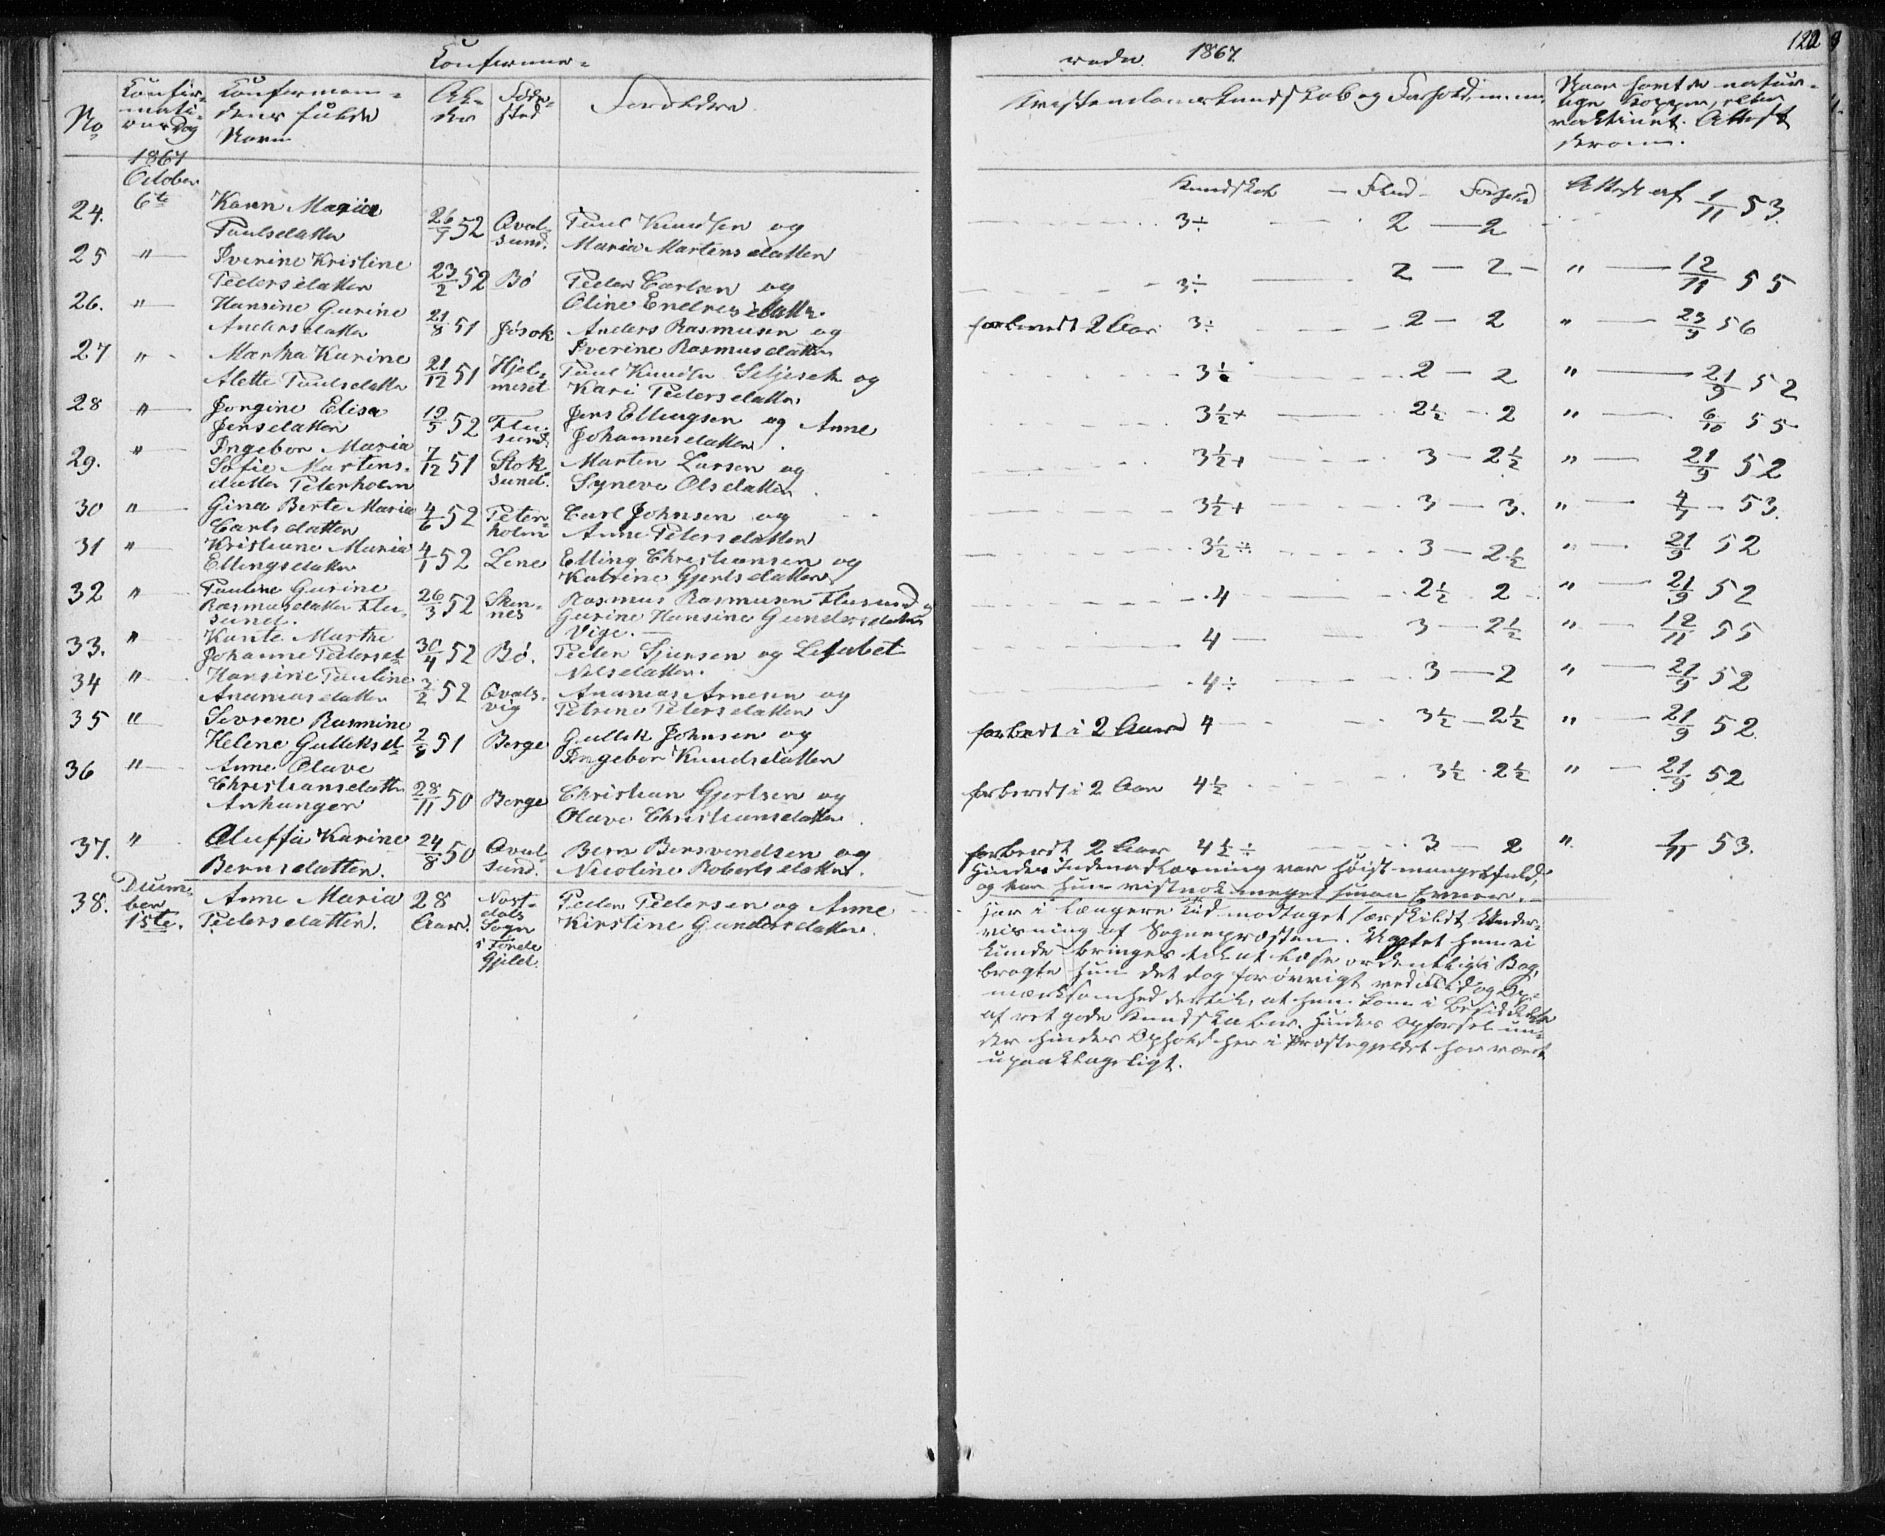 Konfirme-
rede 1867.
120
No
Konfir-
mati-
ons Dag
Konfirman-
dens fulde
Navn
Al-
der
Føde-
sted
Forældre
Kristendomskundskab og Forhold m. m.
Naar havt de natur-
lige Kopper, eller
vaktineret. Attest
derom.
1867
October
Kundskab - Flid - Forhold
24. 6te Karen Maria
Paulsdatter 52 Qval-
sund. Paul Knudsen og
Maria Martensdatter
3÷ 2 — 2 Attest af 1/11 53.
25 " Iverine Kristine
Pedersdatter 23/2 52 Bø Peder Carlsen og
Oline Endresdatter.
3÷ 2 — 2 — " 12/11 55
26. " Hansine Gurine
Andersdatter 21/8 51 Jøsok Anders Rasmusen og
Iverine Rasmusdatter
forberedt 2 Aar 3÷ 2 — 2 " 23/9 56
27 " Martha Karine
Alette Paulsdatter 21/12 51 Hjel-
meset Paul Knudsen Seljeset og
Kari Pedersdatter
3½ 2 — 2 " 21/9 52
28 " Jorgine Elisa
Jensdatter 19/5 52 Flu-
sund Jens Ellingsen og Anne
Johannesdatter.
3½+ 2½ - 2 " 6/10 55
29. " Ingebor Maria
Sofie Martens-
datter Peterholm 7/12 51 Stok-
sund. Marten Larsen og
Syneve Olsdatter
3½+ 3 — 2½ " 21/9 52
30 " Gina Berte Maria
Carlsdatter 4/6 52 Peter-
holm Carl Johnsen og
Anne Petersdatter
3½+ 3 — 3. " 53.
31 " Kristiane Maria
Ellingsdatter 4/1 52 Lene Elling Christiansen og
Katrine Gjertsdatter
3½÷ 3 — 2½ " 21/9 52
32 " Pauline Gurine
Rasmusdatter Flu-
sund. 26/3 52 Sken-
nes Rasmus Rasmusen Flusund og
Gurine Hansine Gundersdatter
Vige.
4 2½ 2 " 21/9 52
33. " Kante Marthe
Johanne Pedersd. 30/4 52 Bø. Peder Sjursen og Lisabet
Nilsdatter.
4 — 3 — 2½ " 12/11 55
34 " Hansine Pauline
Ananiasdatter 3/2 52 Qvals-
vig Ananias Arnesen og
Petrine Petersdatter
4÷ 3 — 2 " 21/9 52
35 " Sevrene Rasmine
Helene Gulleksd. 51 Berge Gullek Johnsen og
Ingebor Knudsdatter
forberedt i 2 Aar 4 — 3½ — 2½ " 21/9 52.
36 " Anne Olave
Christiansdatter
Anhanger 28/11 50 Berge Christian Gjertsen og
Olave Christiansdatter
forberedt i 2 Aar 4½ 3½ · 2½ " 21/9 52
37. " Oluffa Karine
Bernsdatter. 24/8 50 Qval-
sund. Bern Bersvendsen og
Nicoline Robertsdatter.
forberedt 2 Aar 4½÷ 3 — 2 " 1/11 53.
38. Decem-
ber
1ste. Anne Maria
Pedersdatter. 28
Aar. Nost-
dals
Sogn
i Førde
Gjeld. Peder Pedersen og Anne
Kirstine Gundersdatter.
Hendes Indenadlæsning var høist mangelfuld,
og har hun vistnok meget smaa Evner.
har i længere Tid modtaget særskildt Under-
visning af Sognepræsten. Uagtet hun ei
kunde bringes til at læse ordentlig i Bog,
bragte hun det dog forøvrigt ved Flid og Op-
mærksomhed dertil, at hun kom i Besiddelse
af ret gode Kundskaber. Hendes Opførsel un-
der hendes Ophold her i Præstegjeldet har været
upaaklageligt.